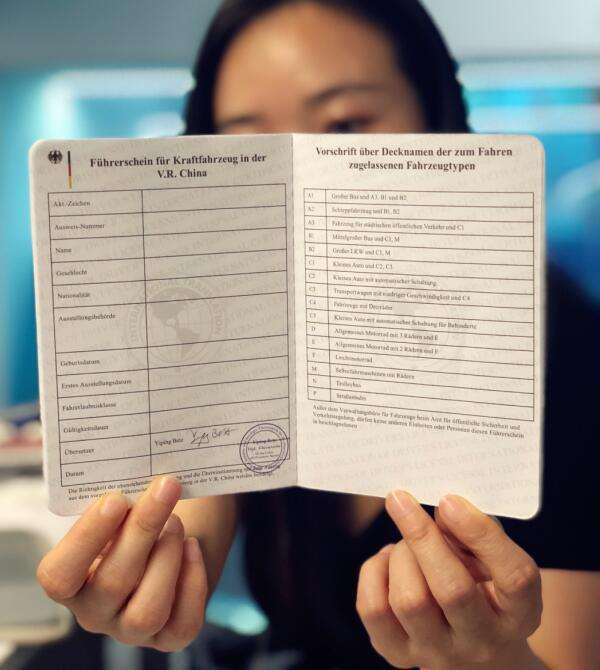 Führerschein für Kraftfahrzeug in der
V.R. China
Akt.-Zeichen
Ausweis-Nummer
Name
Geschlecht
Nationalität
Ausstellungsbehörde
Geburtsdatum
Erstes Ausstellungsdatum
Fahrerlaubnisklasse
Gültigkeitsdatum
Übersetzer Yiping Betz
Datum
Die Richtigkeit der
Vorschrift über Decknamen der zum Fahren
zugelassenen Fahrzeugtypen
A1 Großer Bus und A3, B1 und B2
A2 Schleppfahrzeug und B1, B2
A3 Fahrzeug für städtischen öffentlichen Verkehr und C1
B1 Mittelgroßer Bus und C1, M
B2 Großer LKW und C1, M
C1 Kleines Auto und C2, C3
C2 Kleines Auto mit automatischer Schaltung
C3 Transportwagen mit niedriger Geschwindigkeit und C4
C4 Fahrzeuge mit Dreiräder
C5 Kleines Auto mit automatischer Schaltung für Behinderte
D Allgemeines Motorrad mit 3 Rädern und E
E Allgemeines Motorrad mit 2 Rädern und F
F Leichtmotorrad
M Selbstfahrmaschinen mit Rädern
N Trolleybus
P Straßenbahn
Außer dem Verwaltungsbüro für Fahrzeuge beim Amt für öffentliche Sicherheit und
Verkehrsregelung, dürfen keine anderen Einheiten oder Personen diesen Führerschein
in beschlagnehmen